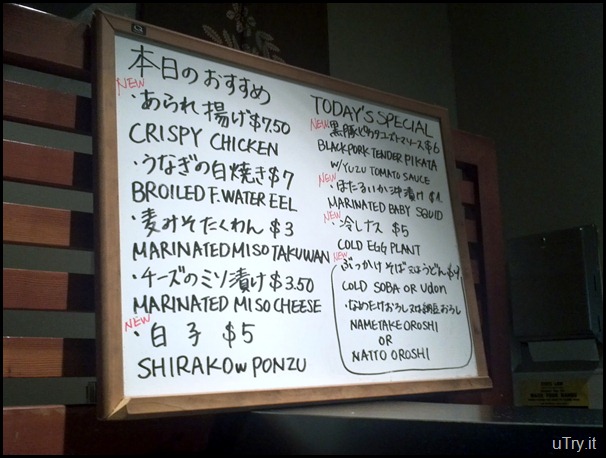 本日のおすすめ
NEW
・あられ揚げ $7.50
CRISPY CHICKEN
・うなぎの白焼き $7
BROILED F.WATER EEL
・麦みそたくわん $3
MARINATED MISO TAKUWAN
・チーズのミソ漬け $3.50
MARINATED MISO CHEESE
NEW
・白子 $5
SHIRAKO w PONZU
TODAY'S SPECIAL
NEW
黒豚ピカタユズトマソース $6
BLACK PORK TENDER PIKATA
W/YUZU TOMATO SAUCE
NEW
・ほたるいか沖漬け
MARINATED BABY SQUID
NEW
・冷しナス $5
COLD EGG PLANT
NEW
ぶっかけそば又はうどん
COLD SOBA OR UDON
・なめたけおろし又は納豆おろし
NAMETAKE OROSHI
OR
NATTO OROSHI
uTry.it